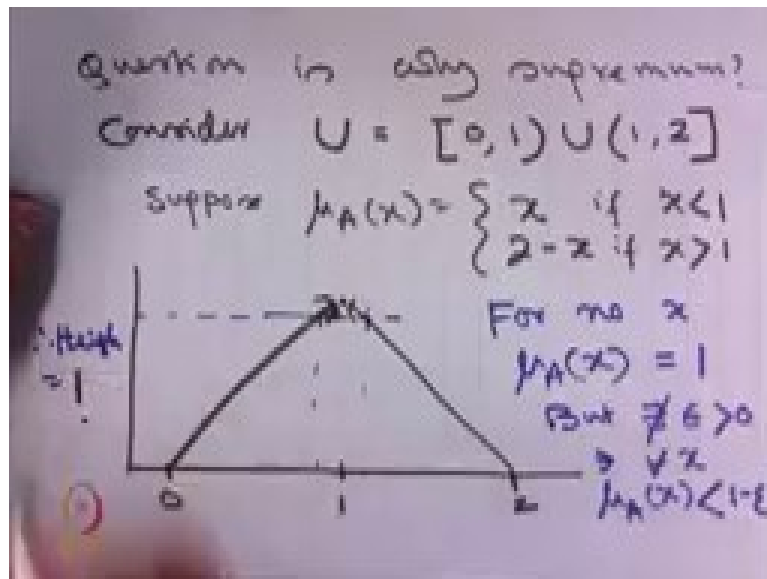 Question is why supremum?
Consider U = [0,1) ∪ (1,2]
Suppose μA(x) = { x if x<1
{ 2-x if x>1
For no x
μA(x) = 1
But ∄ ε >0
∋ ∀x
μA(x) < 1-ε
∴ Heigh
= 1
0 1 2